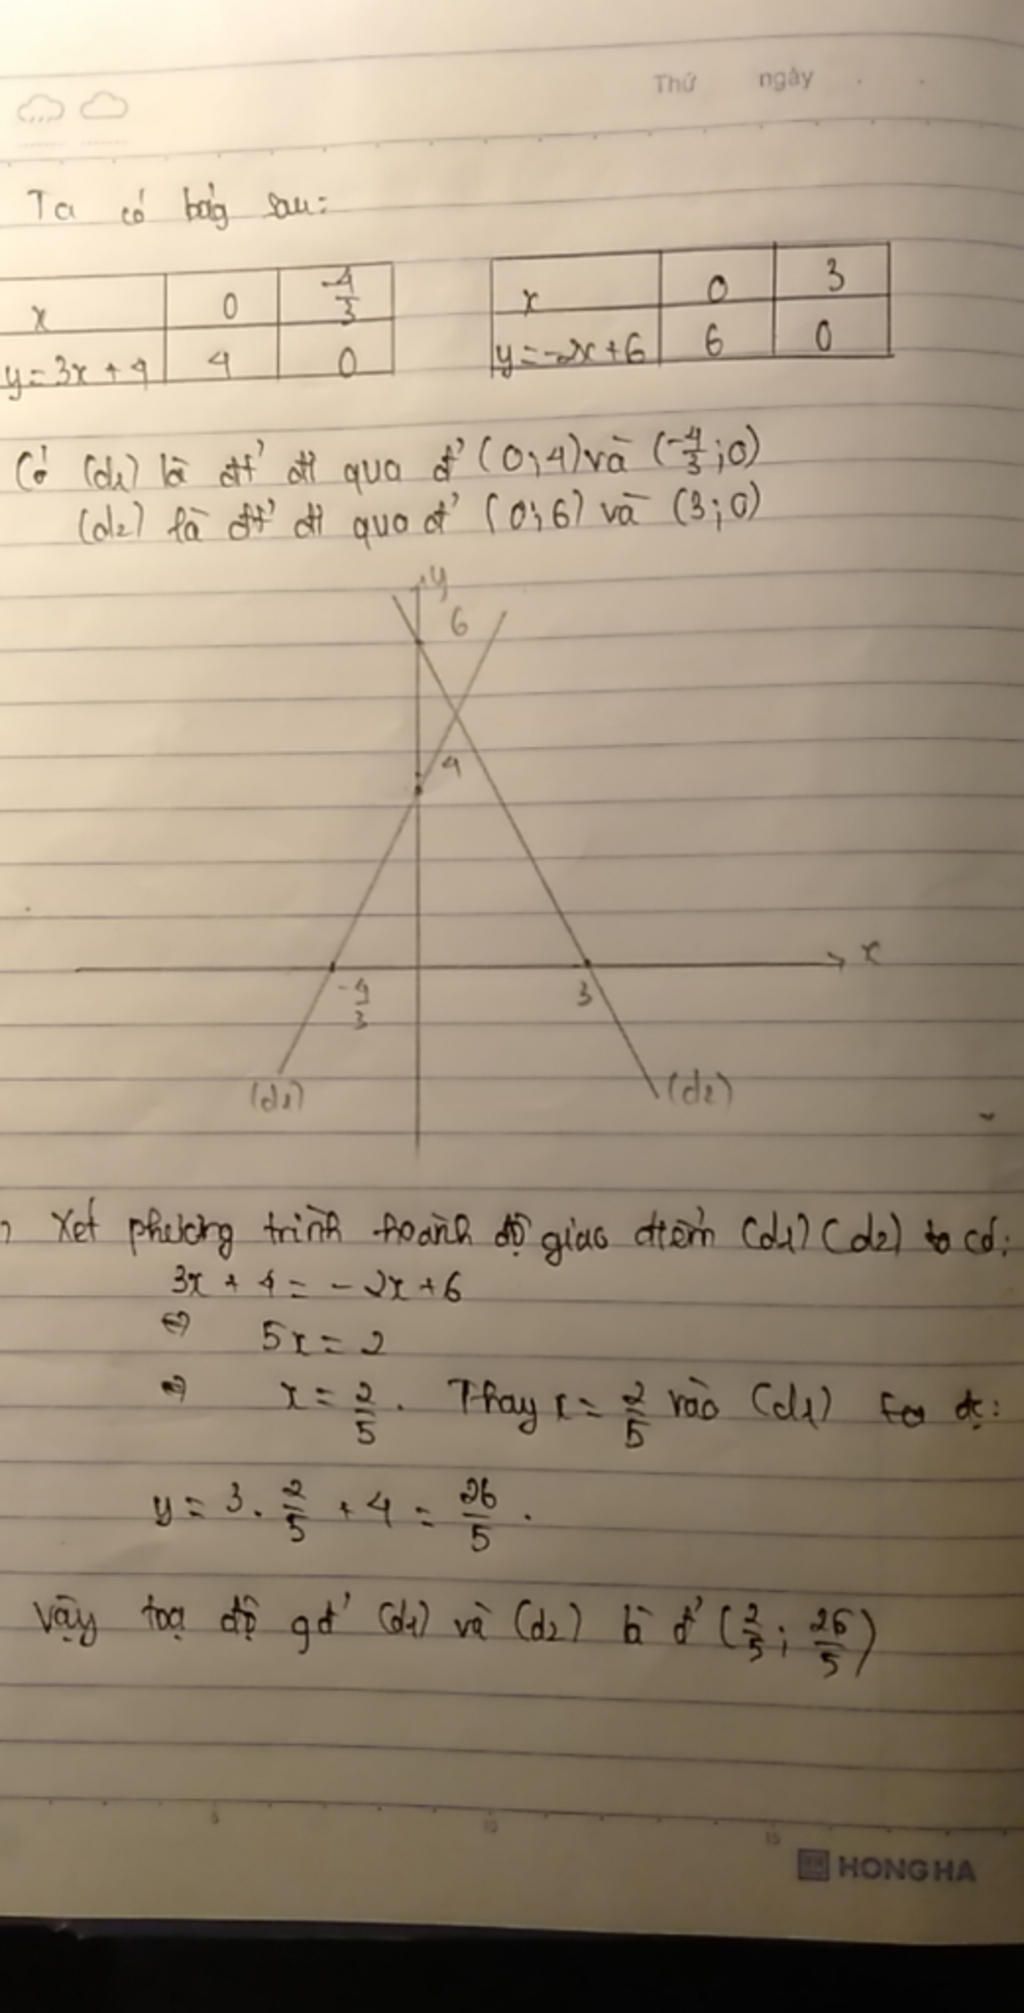 Thứ ngày
Ta có bảg sau:
x 0 -4/3
y=3x+4 4 0
x 0 3
y=-2x+6 6 0
Có (d1) là đt' đi qua đ' (0;4) và (-4/3;0)
(d2) là đt' đi qua đ' (0;6) và (3;0)
y
6
4
x
-4/3
3
(d1)
(d2)
Xét phương trình hoành độ giao điểm (d1) (d2) ta có:
3x + 4 = -2x+6
⇔ 5x = 2
⇔ x = 2/5. Thay x = 2/5 vào (d1) ta đc:
y = 3. 2/5 + 4 = 26/5.
Vậy toạ độ gđ' (d1) và (d2) là đ' (2/5; 26/5)
5 10 15
HONG HA